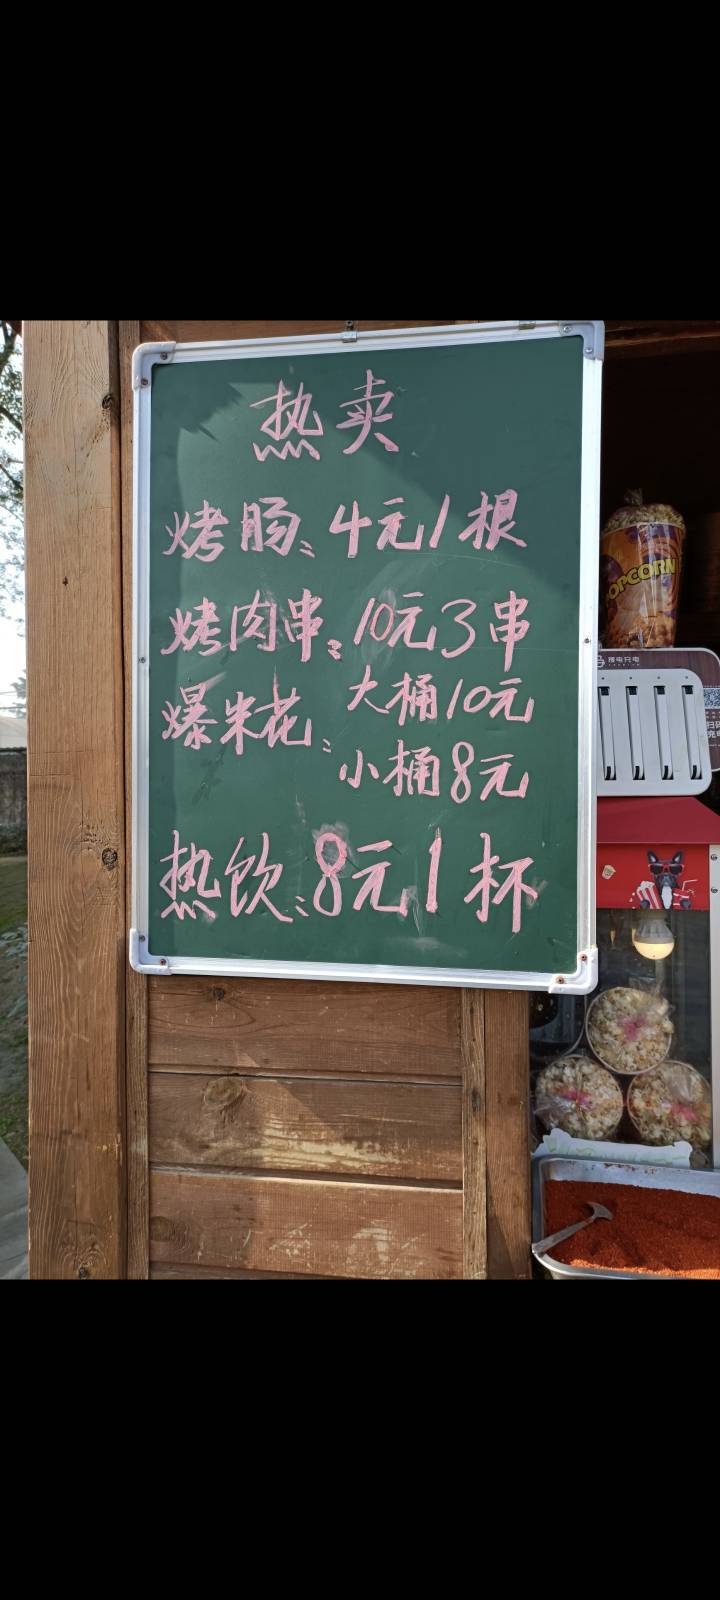 热卖
烤肠: 4元1根
烤肉串: 10元3串
爆米花: 大桶10元
小桶8元
热饮: 8元1杯
POPCORN
搜电充电